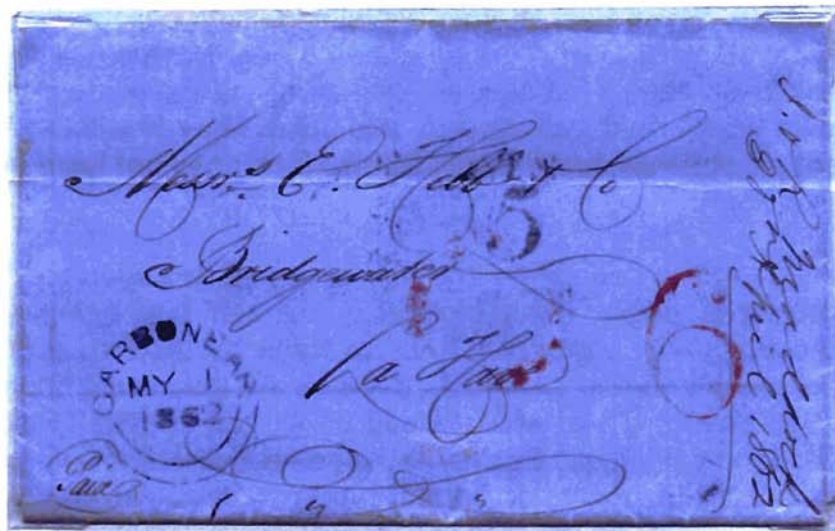 Messrs. E. & Co
5
Bridgewater
La Have
6
CARBONEAR
MY 1
1862
Paid
April 1862